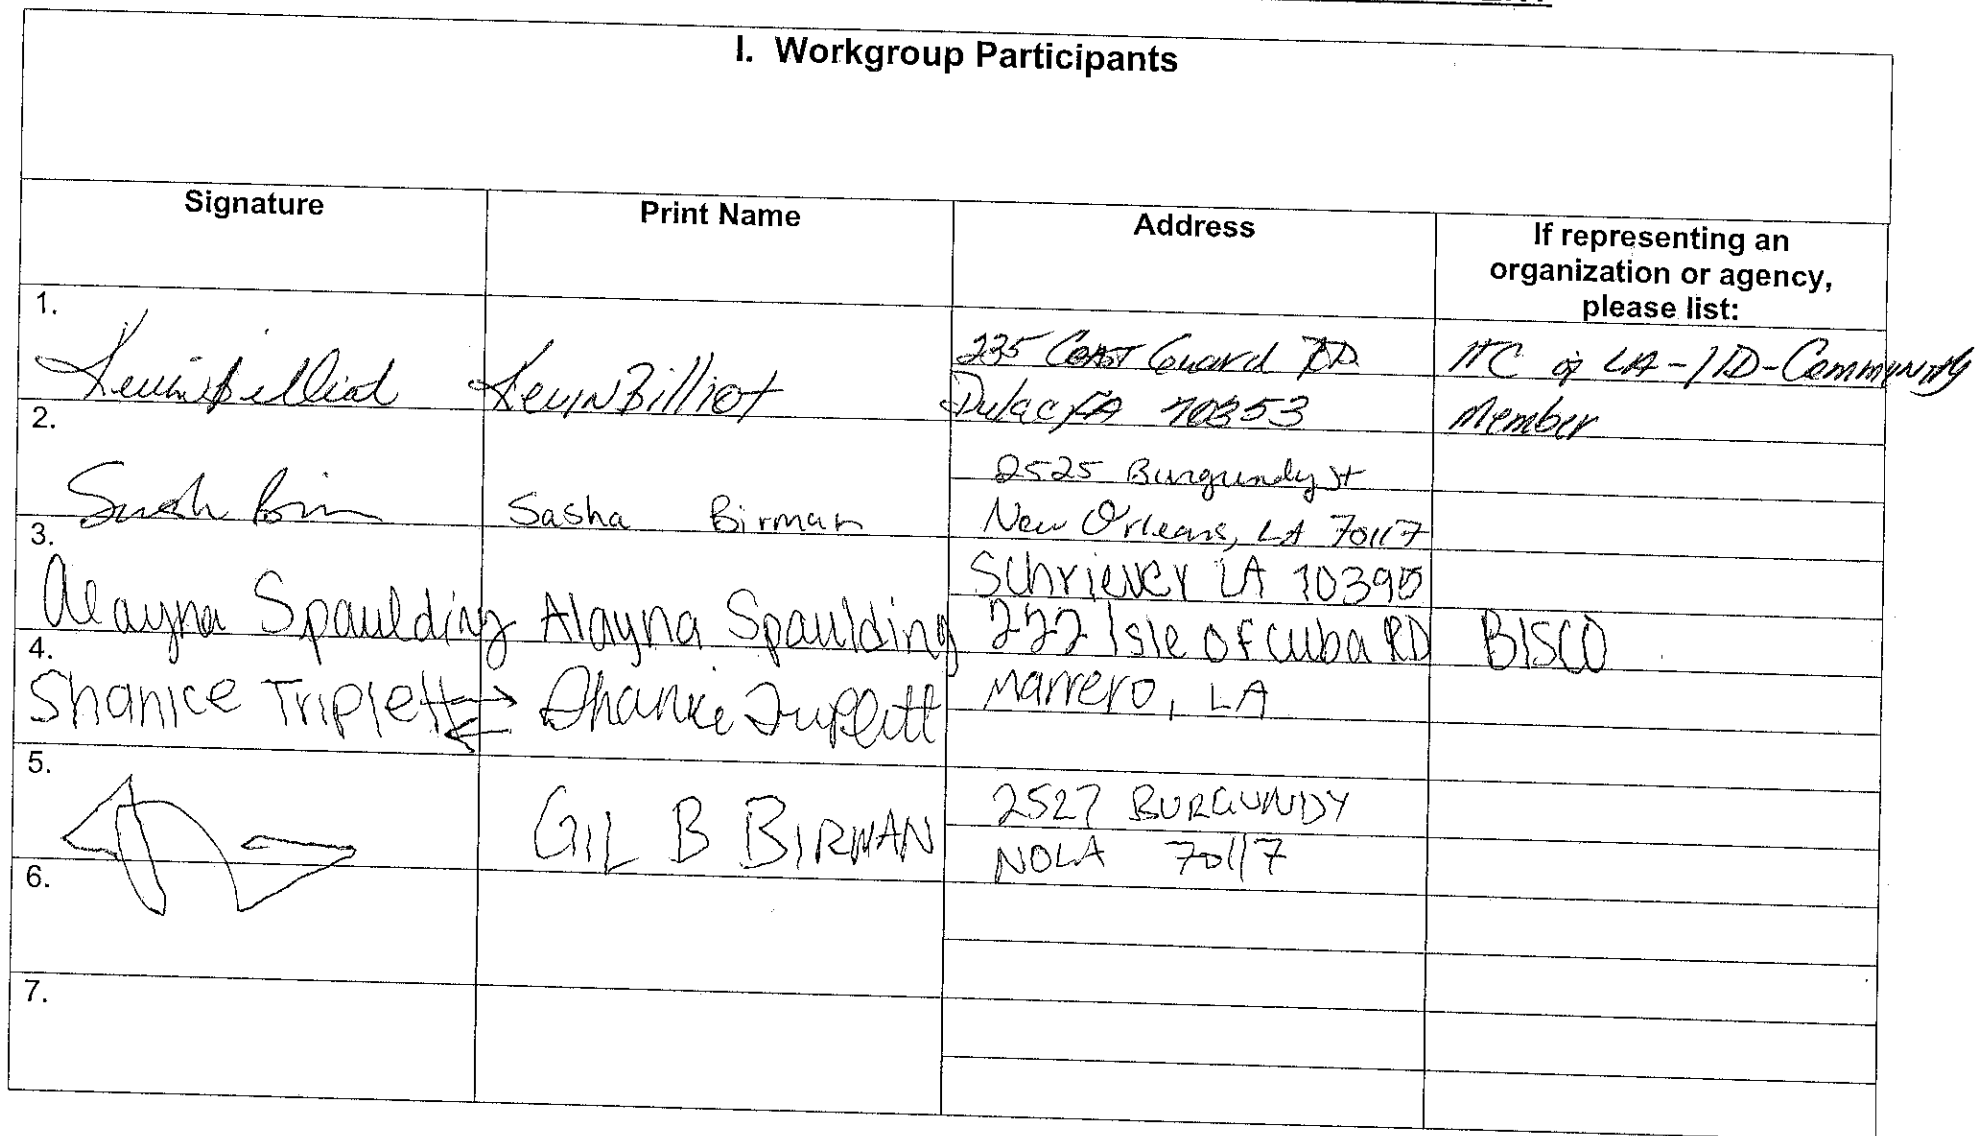 I. Workgroup Participants
Signature
Print Name
Address
If representing an
organization or agency,
please list:
1.
Kevin Billiot
Kevin Billiot
235 Coast Guard RD
Dulac LA 70353
ITC of LA-HD-Community
Member
2.
Sasha Birman
2525 Burgundy St
New Orleans, LA 70117
3.
Alayna Spaulding
Alayna Spaulding
Schriever LA 70395
222 Isle of Cuba RD
BISCO
4.
Shanice Triplett
Shanice Triplett
Marrero, LA
5.
GIL B BIRMAN
2527 BURGUNDY
NOLA 70117
6.
7.